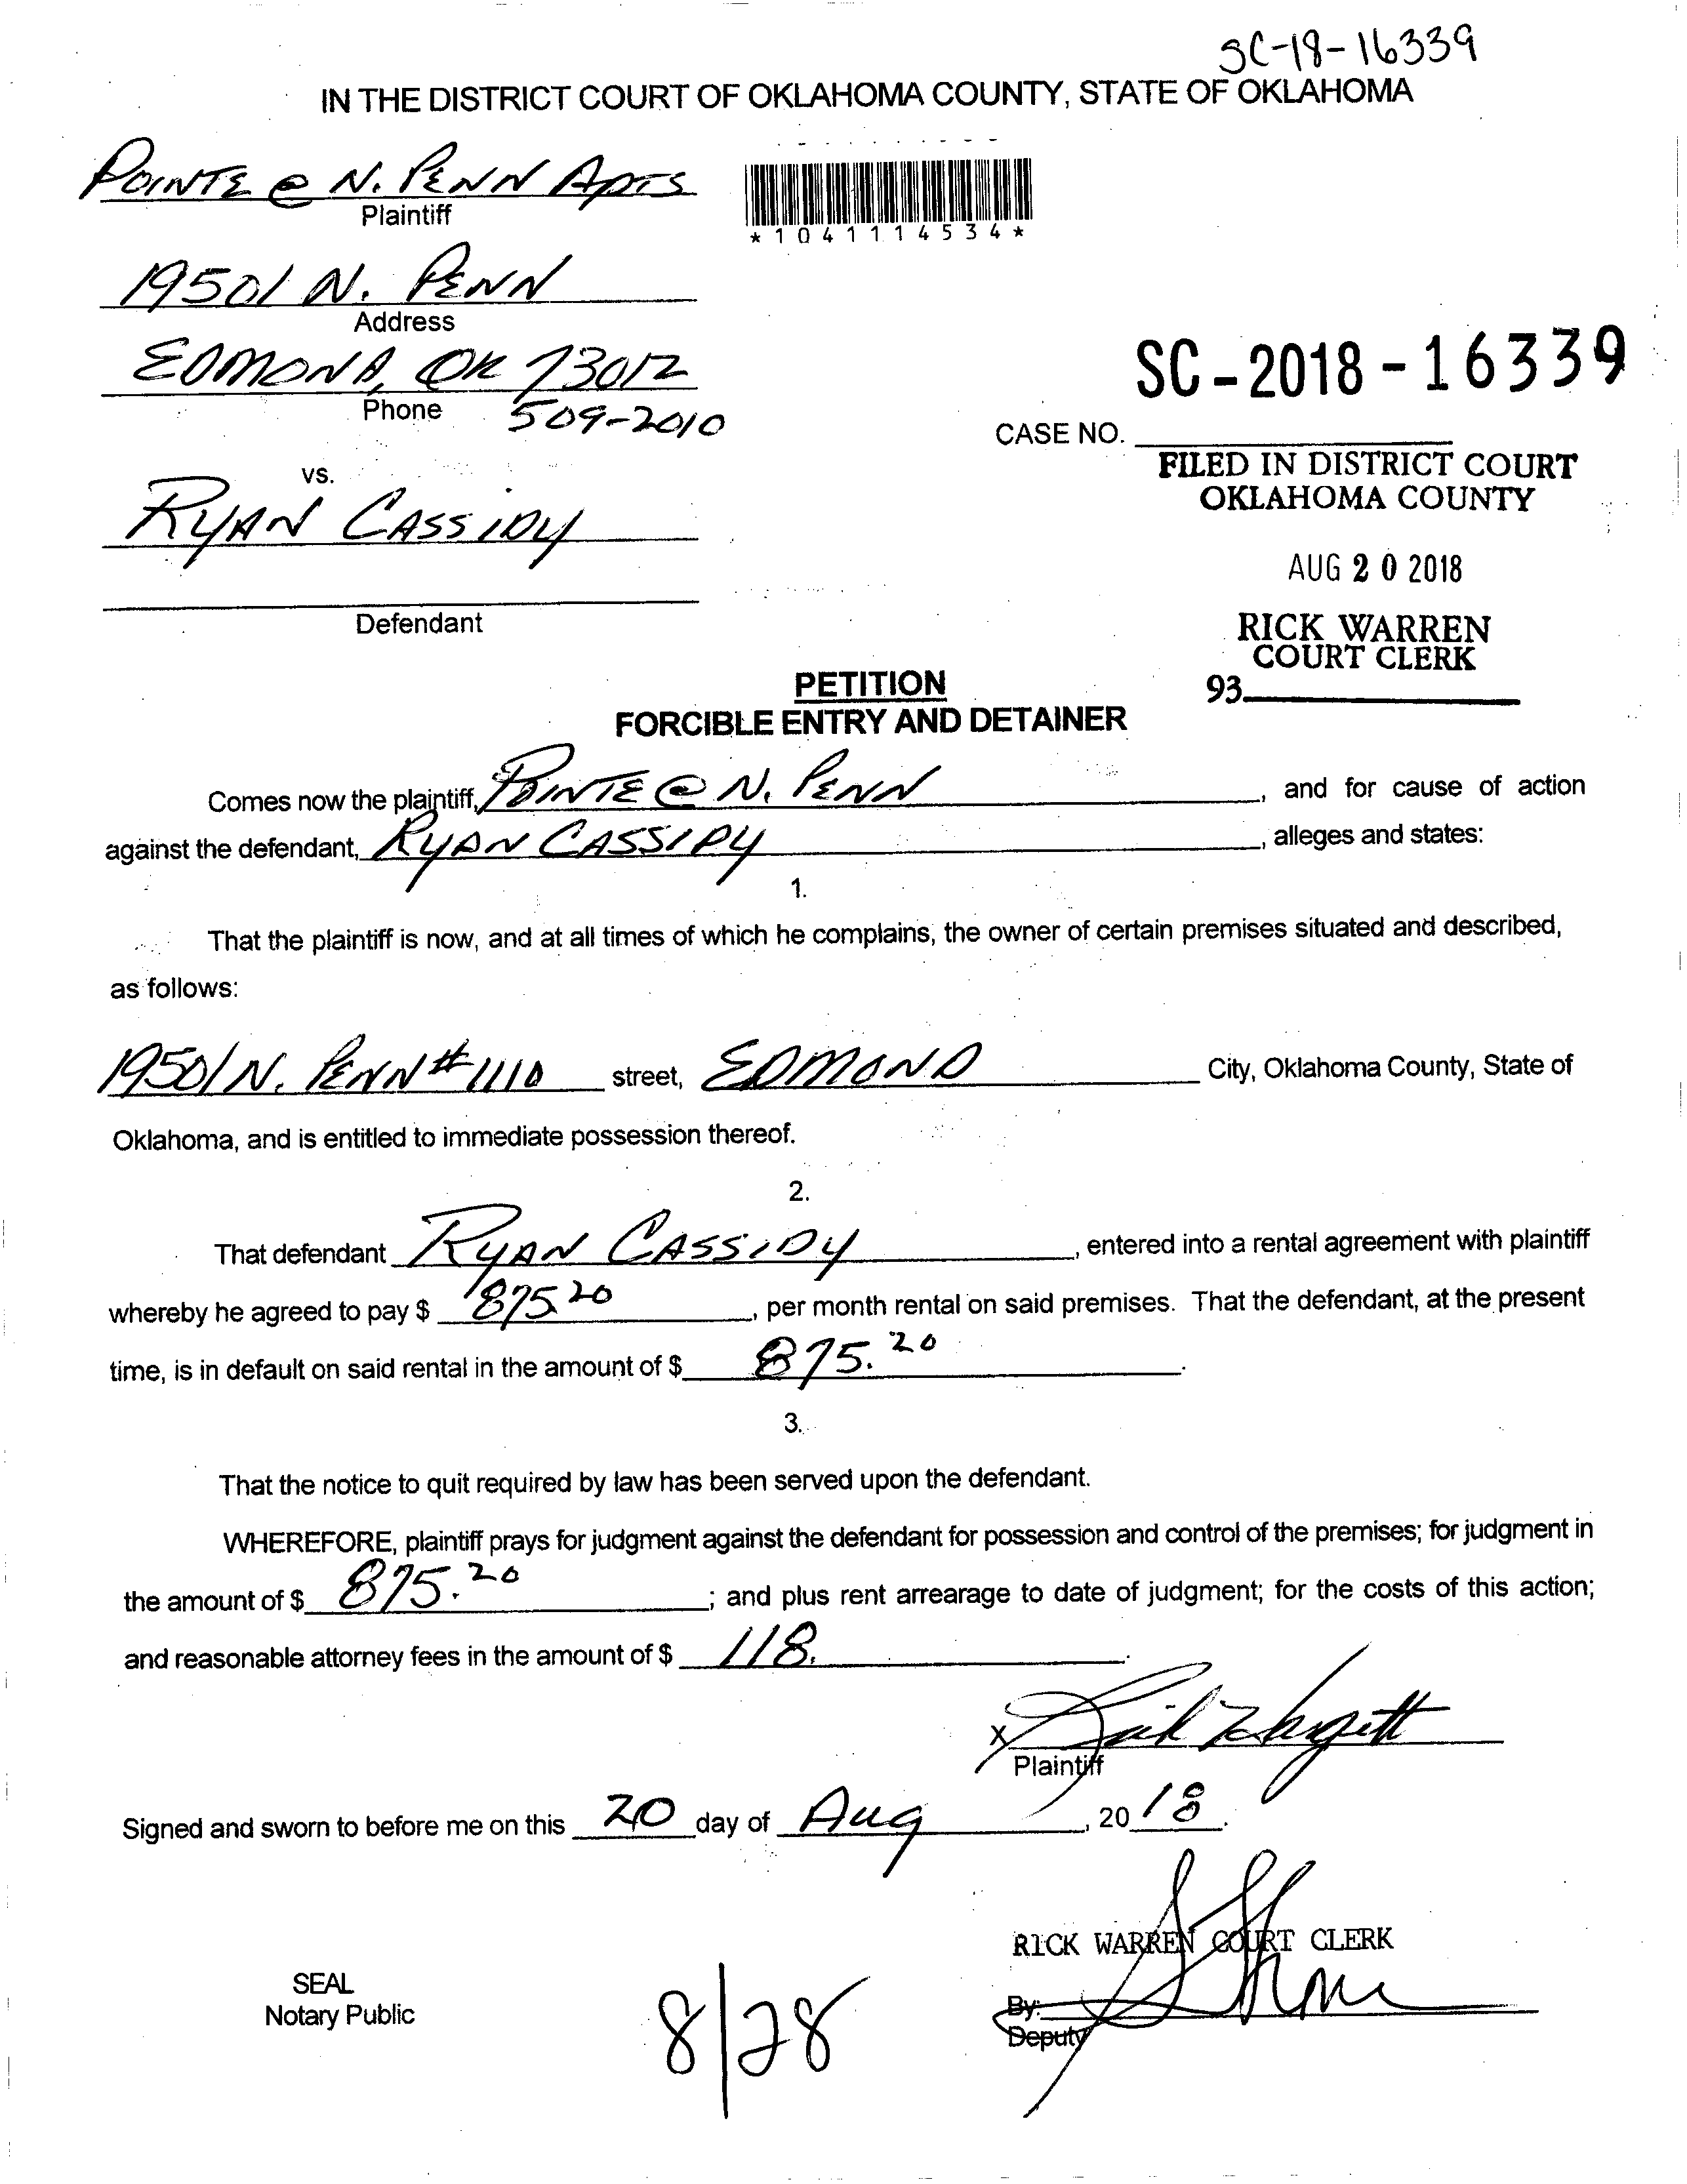 SC-18-16339
IN THE DISTRICT COURT OF OKLAHOMA COUNTY, STATE OF OKLAHOMA
POINTE @ N. PENN APTS
Plaintiff
*1041114534*
19501 N. PENN
Address
EDMOND, OK 73012
Phone 509-2010
SC-2018-16339
CASE NO.
FILED IN DISTRICT COURT
OKLAHOMA COUNTY
vs.
RYAN CASSIDY
AUG 20 2018
Defendant
RICK WARREN
COURT CLERK
93
PETITION
FORCIBLE ENTRY AND DETAINER
Comes now the plaintiff, POINTE @ N. PENN, and for cause of action
against the defendant, RYAN CASSIDY, alleges and states:
1.
That the plaintiff is now, and at all times of which he complains, the owner of certain premises situated and described,
as follows:
19501 N. PENN #1110 street, EDMOND City, Oklahoma County, State of
Oklahoma, and is entitled to immediate possession thereof.
2.
That defendant RYAN CASSIDY, entered into a rental agreement with plaintiff
whereby he agreed to pay $ 875.20, per month rental on said premises. That the defendant, at the present
time, is in default on said rental in the amount of $ 875.20.
3.
That the notice to quit required by law has been served upon the defendant.
WHEREFORE, plaintiff prays for judgment against the defendant for possession and control of the premises; for judgment in
the amount of $ 875.20; and plus rent arrearage to date of judgment; for the costs of this action;
and reasonable attorney fees in the amount of $ 118.
X
Plaintiff
Signed and sworn to before me on this 20 day of Aug, 2018.
RICK WARREN COURT CLERK
SEAL
Notary Public
By:
Deputy
8/28